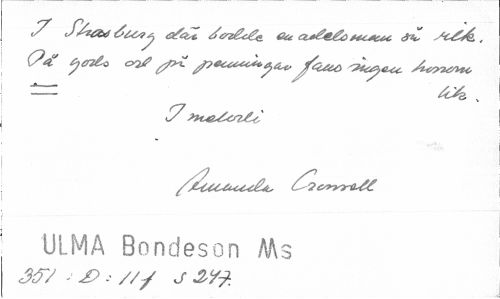 I Strasburg där bodde en adelsman så rik.
På gods och på penningar fans ingen honom
lik.
I melodi
Amanda
ULMA Bondeson Ms
351:D:11f s 247.